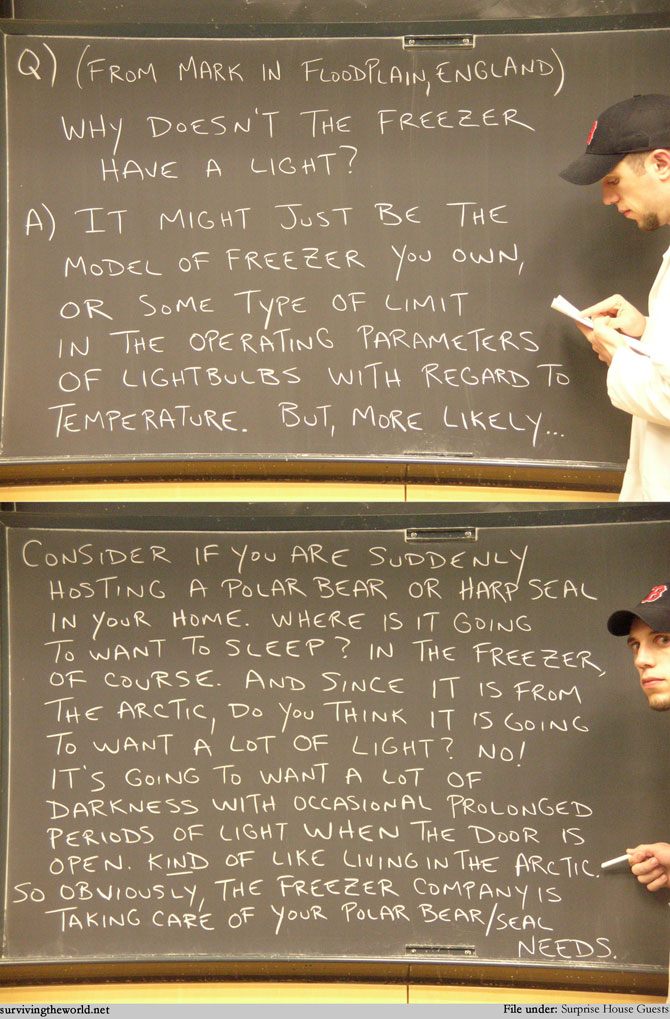 Q) (FROM MARK IN FLOODPLAIN, ENGLAND)
WHY DOESN'T THE FREEZER
HAVE A LIGHT?
A) IT MIGHT JUST BE THE
MODEL OF FREEZER YOU OWN,
OR SOME TYPE OF LIMIT
IN THE OPERATING PARAMETERS
OF LIGHTBULBS WITH REGARD TO
TEMPERATURE. BUT, MORE LIKELY...
CONSIDER IF YOU ARE SUDDENLY
HOSTING A POLAR BEAR OR HARP SEAL
IN YOUR HOME. WHERE IS IT GOING
TO WANT TO SLEEP? IN THE FREEZER,
OF COURSE. AND SINCE IT IS FROM
THE ARCTIC, DO YOU THINK IT IS GOING
TO WANT A LOT OF LIGHT? NO!
IT'S GOING TO WANT A LOT OF
DARKNESS WITH OCCASIONAL PROLONGED
PERIODS OF LIGHT WHEN THE DOOR IS
OPEN. KIND OF LIKE LIVING IN THE ARCTIC.
SO OBVIOUSLY, THE FREEZER COMPANY IS
TAKING CARE OF YOUR POLAR BEAR/SEAL
NEEDS.
survivingtheworld.net File under: Surprise House Guests